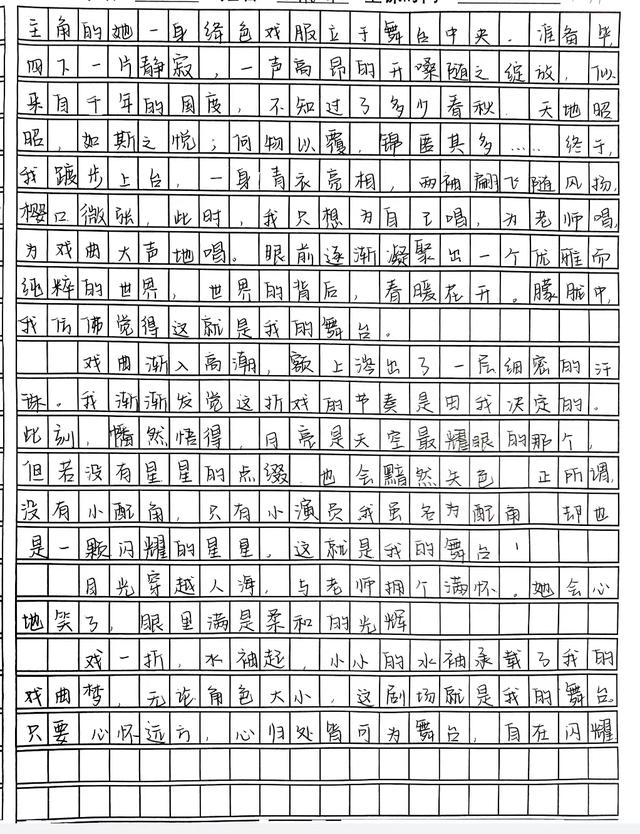 主角的她一身绛色戏服立于舞台中央。准备毕,
四下一片静寂,一声高昂的开嗓随之绽放,似
来自千年的国度,不知过了多少春秋。天地昭
昭,如斯之悦;何物以覆,锦匿其多……终于,
我踱步上台,一身青衣亮相,两袖翩飞随风扬,
樱口微张,此时,我只想为自己唱,为老师唱,
为戏曲大声地唱。眼前逐渐凝聚出一个优雅而
纯粹的世界,世界的背后,春暖花开。朦胧中,
我仿佛觉得这就是我的舞台。
戏曲渐入高潮,额上渗出了一层细密的汗
珠。我渐渐发觉这折戏的节奏是由我决定的。
此刻,幡然悟得,月亮是天空最耀眼的那个,
但若没有星星的点缀,也会黯然失色。正所谓,
没有小配角,只有小演员我虽名为配角 却也
是一颗闪耀的星星。这就是我的舞台!
目光穿越人海,与老师拥个满怀。她会心
地笑了,眼里满是柔和的光辉
戏一折,水袖起,小小的水袖承载了我的
戏曲梦,无论角色大小,这剧场就是我的舞台。
只要心怀远方,心归处皆可为舞台,自在闪耀